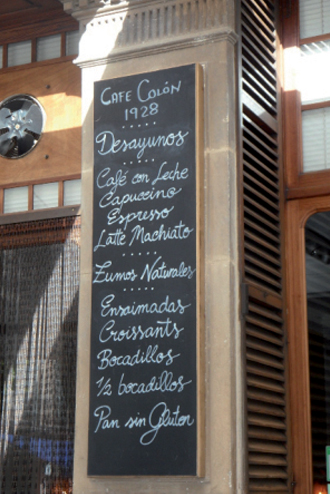 CAFE COLÓN
1928
Desayunos
Café con Leche
Capuccino
Espresso
Latte Machiato
Zumos Naturales
Ensaimadas
Croissants
Bocadillos
1/2 bocadillos
Pan sin Gluton